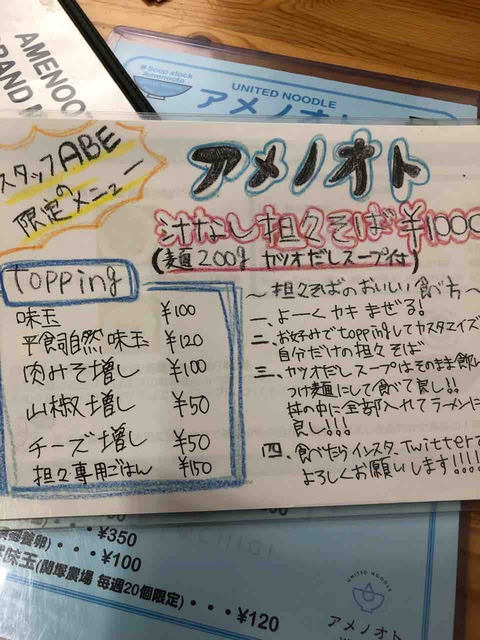 AMENOO
RAND
Soup stock
Amenooto
UNITED NOODLE
アメノオト
スタッフABE
の
限定のメニュー
アメノオト
汁なし担々そば ¥1000
(麦麺200g カツオだしスープ付)
topping
味玉 ¥100
平飼自然味玉 ¥120
肉みそ増し ¥100
山椒増し ¥50
チーズ増し ¥50
担々専用ごはん ¥150
〜担々そばのおいしい食べ方〜
一、よーくカキまぜる!
二、お好みでtoppingしてカスタマイズ
自分だけの担々そば
三、カツオだしスープはそのまま飲い
つけ麺にして食べて良し!!
丼の中に全部入れてラーメンに
良し!!!
四、食べたらインスタ、Twitterで
よろしくお願いします!!!!
卵)・・・¥350
・・・¥100
味玉(関塚農場 毎週20個限定)・・・¥120
UNITED NOODLE
アメノオト